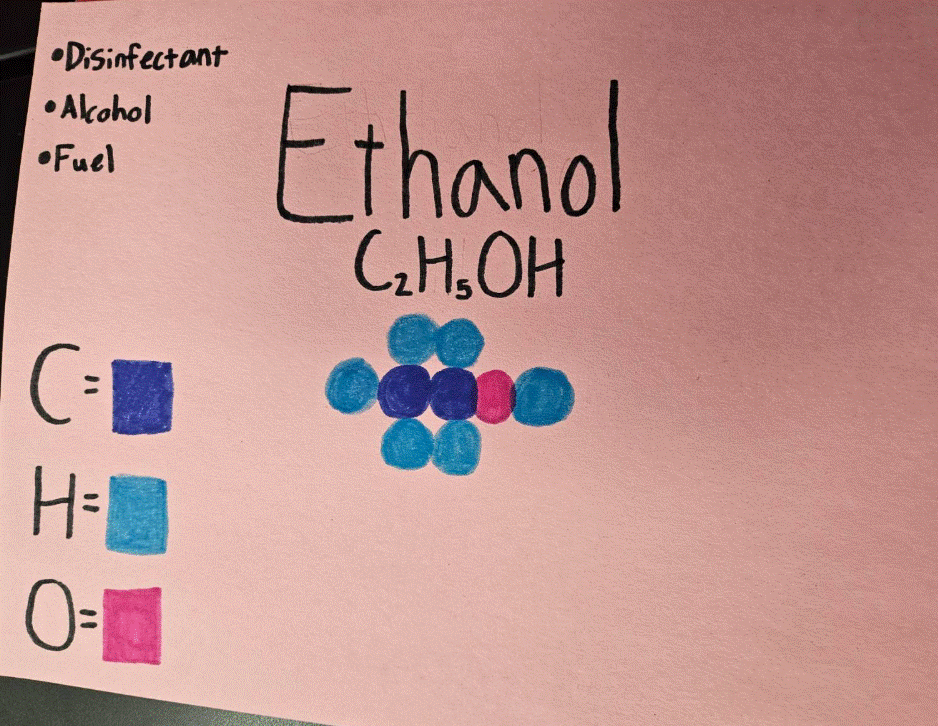 •Disinfectant
•Alcohol
•Fuel
Ethanol
C₂H₅OH
C=
H=
O=